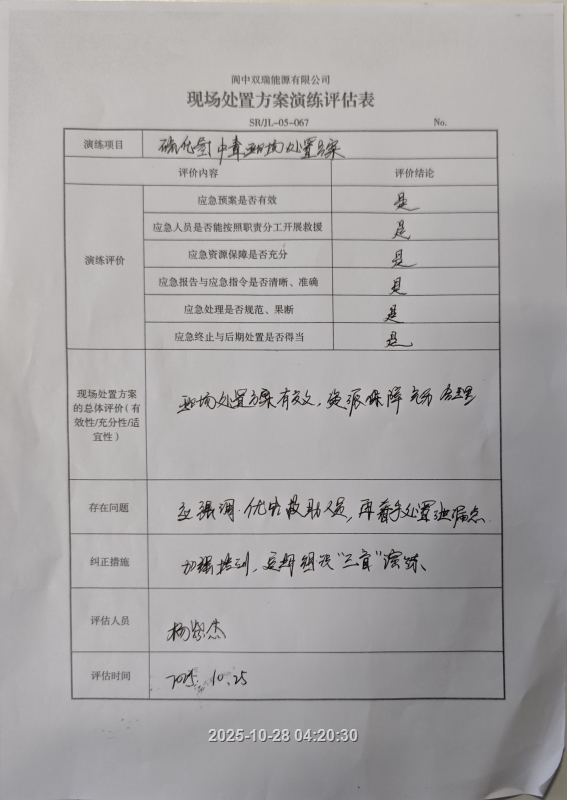 阆中双瑞能源有限公司
现场处置方案演练评估表
SR/JL-05-067 No.
演练项目 硫化氢中毒现场处置方案
评价内容 评价结论
演练评价
应急预案是否有效 是
应急人员是否能按照职责分工开展救援 是
应急资源保障是否充分 是
应急报告与应急指令是否清晰、准确 是
应急处理是否规范、果断 是
应急终止与后期处置是否得当 是
现场处置方案
的总体评价（有
效性/充分性/适
宜性）
现场处置方案有效，资源保障充分合理
存在问题 应强调优先救助人员，再着手处置泄漏点
纠正措施 加强培训，定期组织“三盲”演练
评估人员 杨
评估时间 2025.10.25
2025-10-28 04:20:30